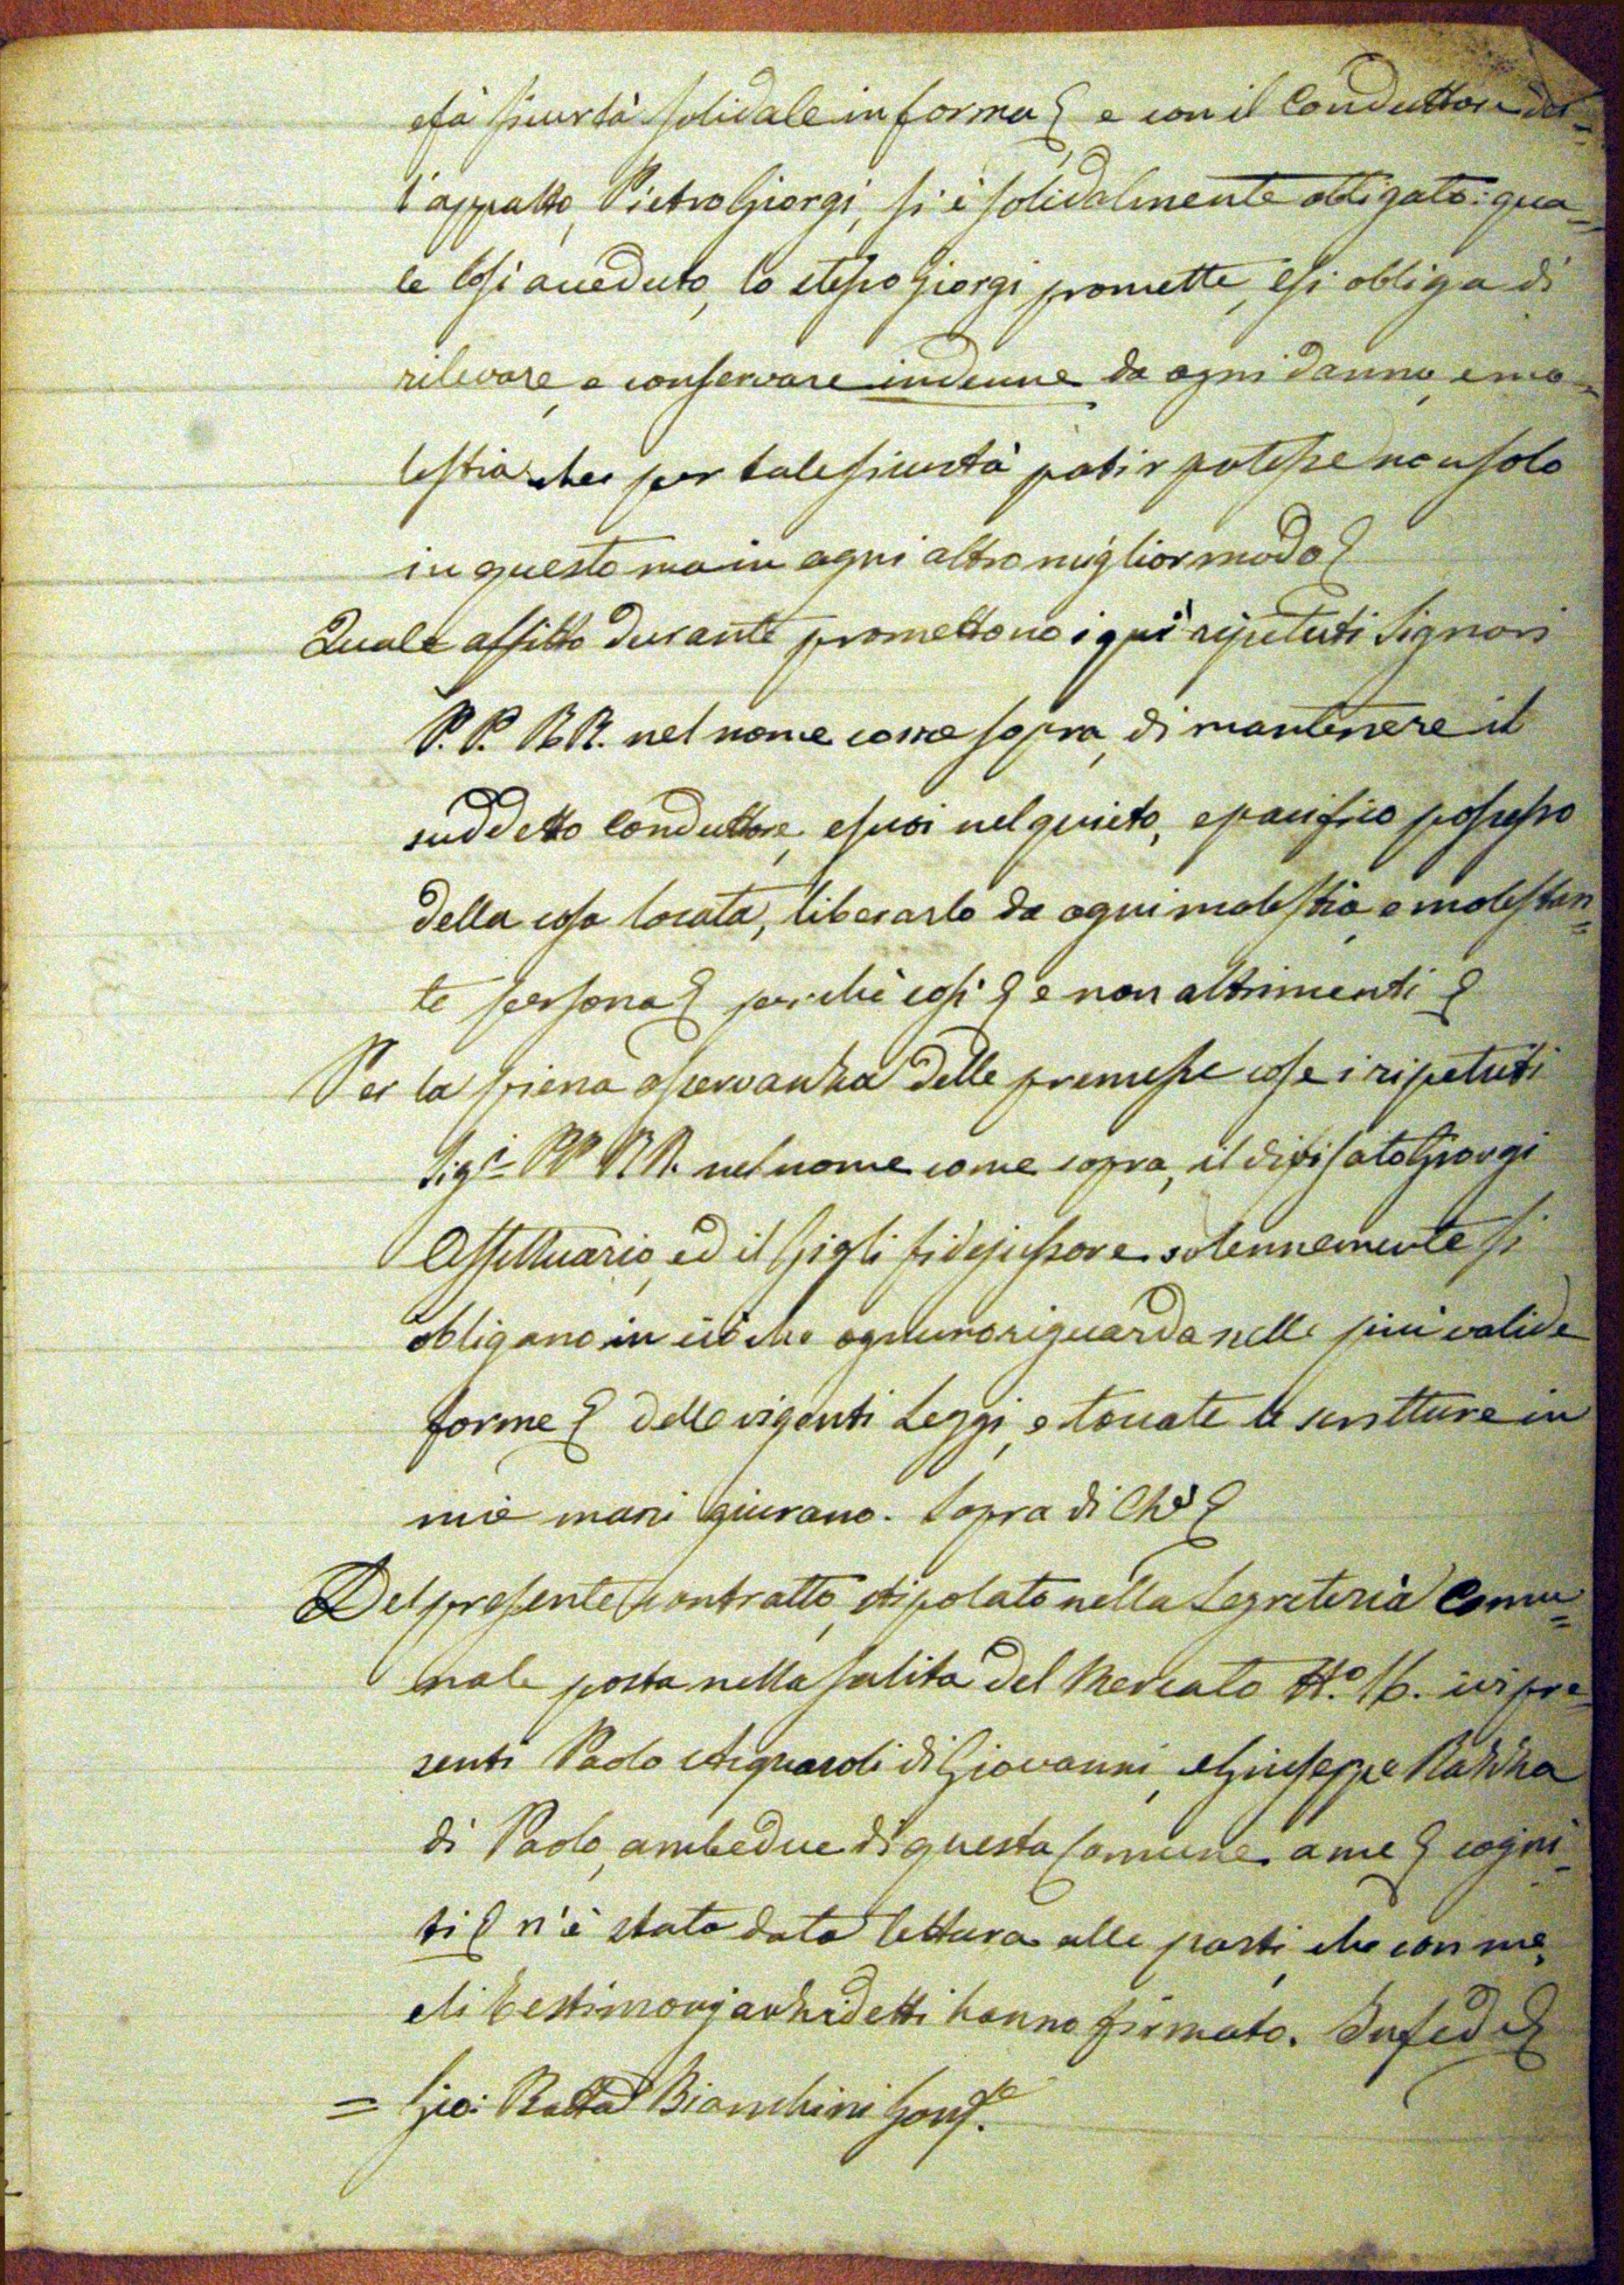 e fà sicurtà solidale in forma e con il Conduttore del=
l'appalto, Pietro Giorgi, si è solidalmente obligato: qua=
le così acceduto, lo stesso Giorgi promette, e si obliga di
rilevare, e conservare indenne da ogni danno, e mo=
lestia che per tale sicurtà patir potesse non solo
in questo ma in ogni altro miglior modo
Quale affitto durante promettono i qui ripetuti Signori
P. P. R R. nel nome come sopra, di mantenere il
suddetto Conduttore, e suoi nel quieto, e pacifico possesso
della cosa locata, liberarlo da ogni molestia, e molestan=
te persona perchè così e non altrimenti
Per la piena osservanza delle premesse cose i ripetuti
Sig.ri PP RR. nel nome come sopra, il divisato Giorgi
Affittuario, ed il Gigli fidejussore solennemente si
obligano in ciò che ognuno riguarda nelle più valide
forme delle vigenti Leggi, e toccate le scritture in
mie mani giurano. Sopra di Che
Del presente Contratto, stipolato nella Segreteria Comu=
nale posta nella salita del Mercato N.° 16. ivi pre=
senti Paolo di Giovanni, e Giuseppe
di Paolo, ambedue di questa Comune, a me cogni=
ti n'è stata data lettura alle parti, che con me,
e li testimonj anzidetti hanno firmato. In fede
= Gio: Batta Bianchini Gonf.re